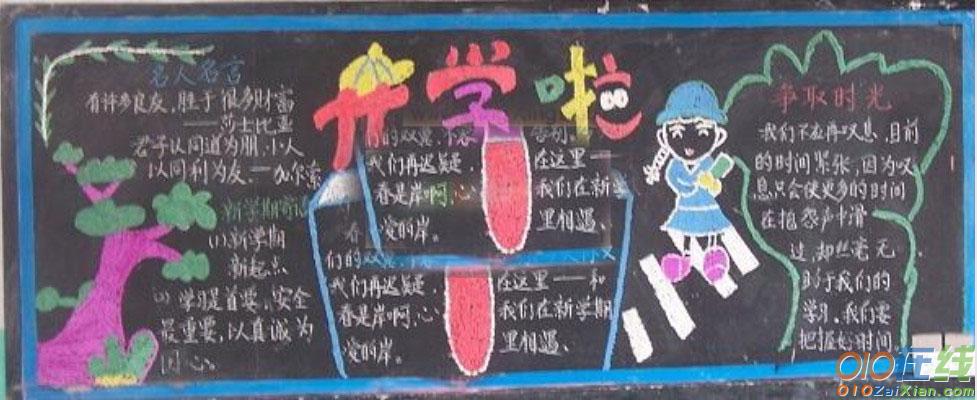 开学啦
名人名言
有许多良友，胜于很多财富
——莎士比亚
君子以同道为朋，小人
以同利为友。——加尔索
新学期寄语
(1)新学期
新起点
(2)学习是首要，安全
最重要，以真诚为
同心。
们的双翼，
我们再迟疑，
春是岸啊，心
爱的岸。
告别，
在这里——
我们在新学
里相遇。
春
们的双翼，
我们再迟疑，
春是岸啊，心
爱的岸。
在这里——和
我们在新学期
里相遇、
争取时光
我们不应再叹息，目前
的时间紧张，因为叹
息只会使更多的时间
在抱怨声中滑
过，却丝毫无
助于我们的
学习。我们要
把握好时间
010在线
010ZaiXian.com